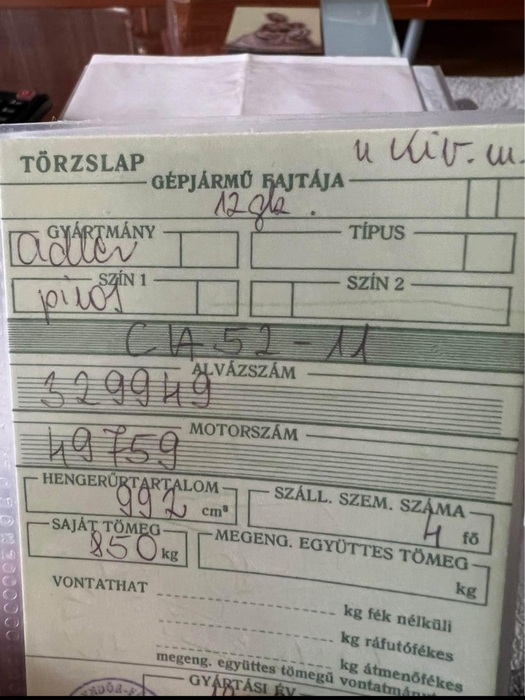 TÖRZSLAP
GÉPJÁRMŰ FAJTÁJA
GYÁRTMÁNY
adler
TÍPUS
SZÍN 1
piros
SZÍN 2
CA 52-11
ALVÁZSZÁM
329949
MOTORSZÁM
49759
HENGERŰRTARTALOM
992 cm³
SZÁLL. SZEM. SZÁMA
4 fő
SAJÁT TÖMEG
850 kg
MEGENG. EGYÜTTES TÖMEG
kg
VONTATHAT
kg fék nélküli
kg ráfutófékes
kg átmenőfékes
megeng. együttes tömegű vontatmány
GYÁRTÁSI ÉV